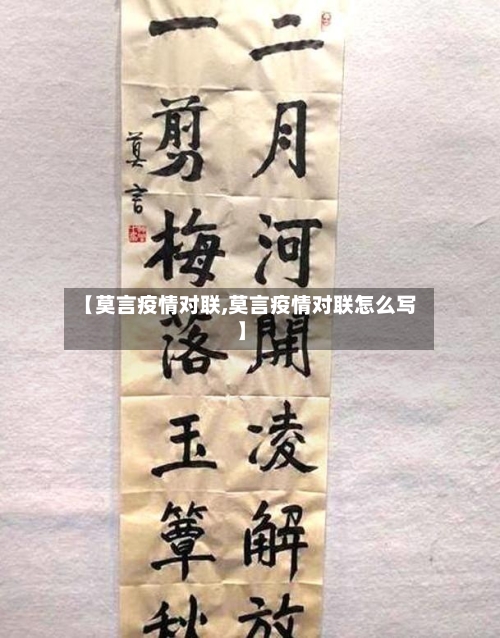 二月河開凌解放
一剪梅落玉簟秋
莫言
【莫言疫情对联,莫言疫情对联怎么写
】